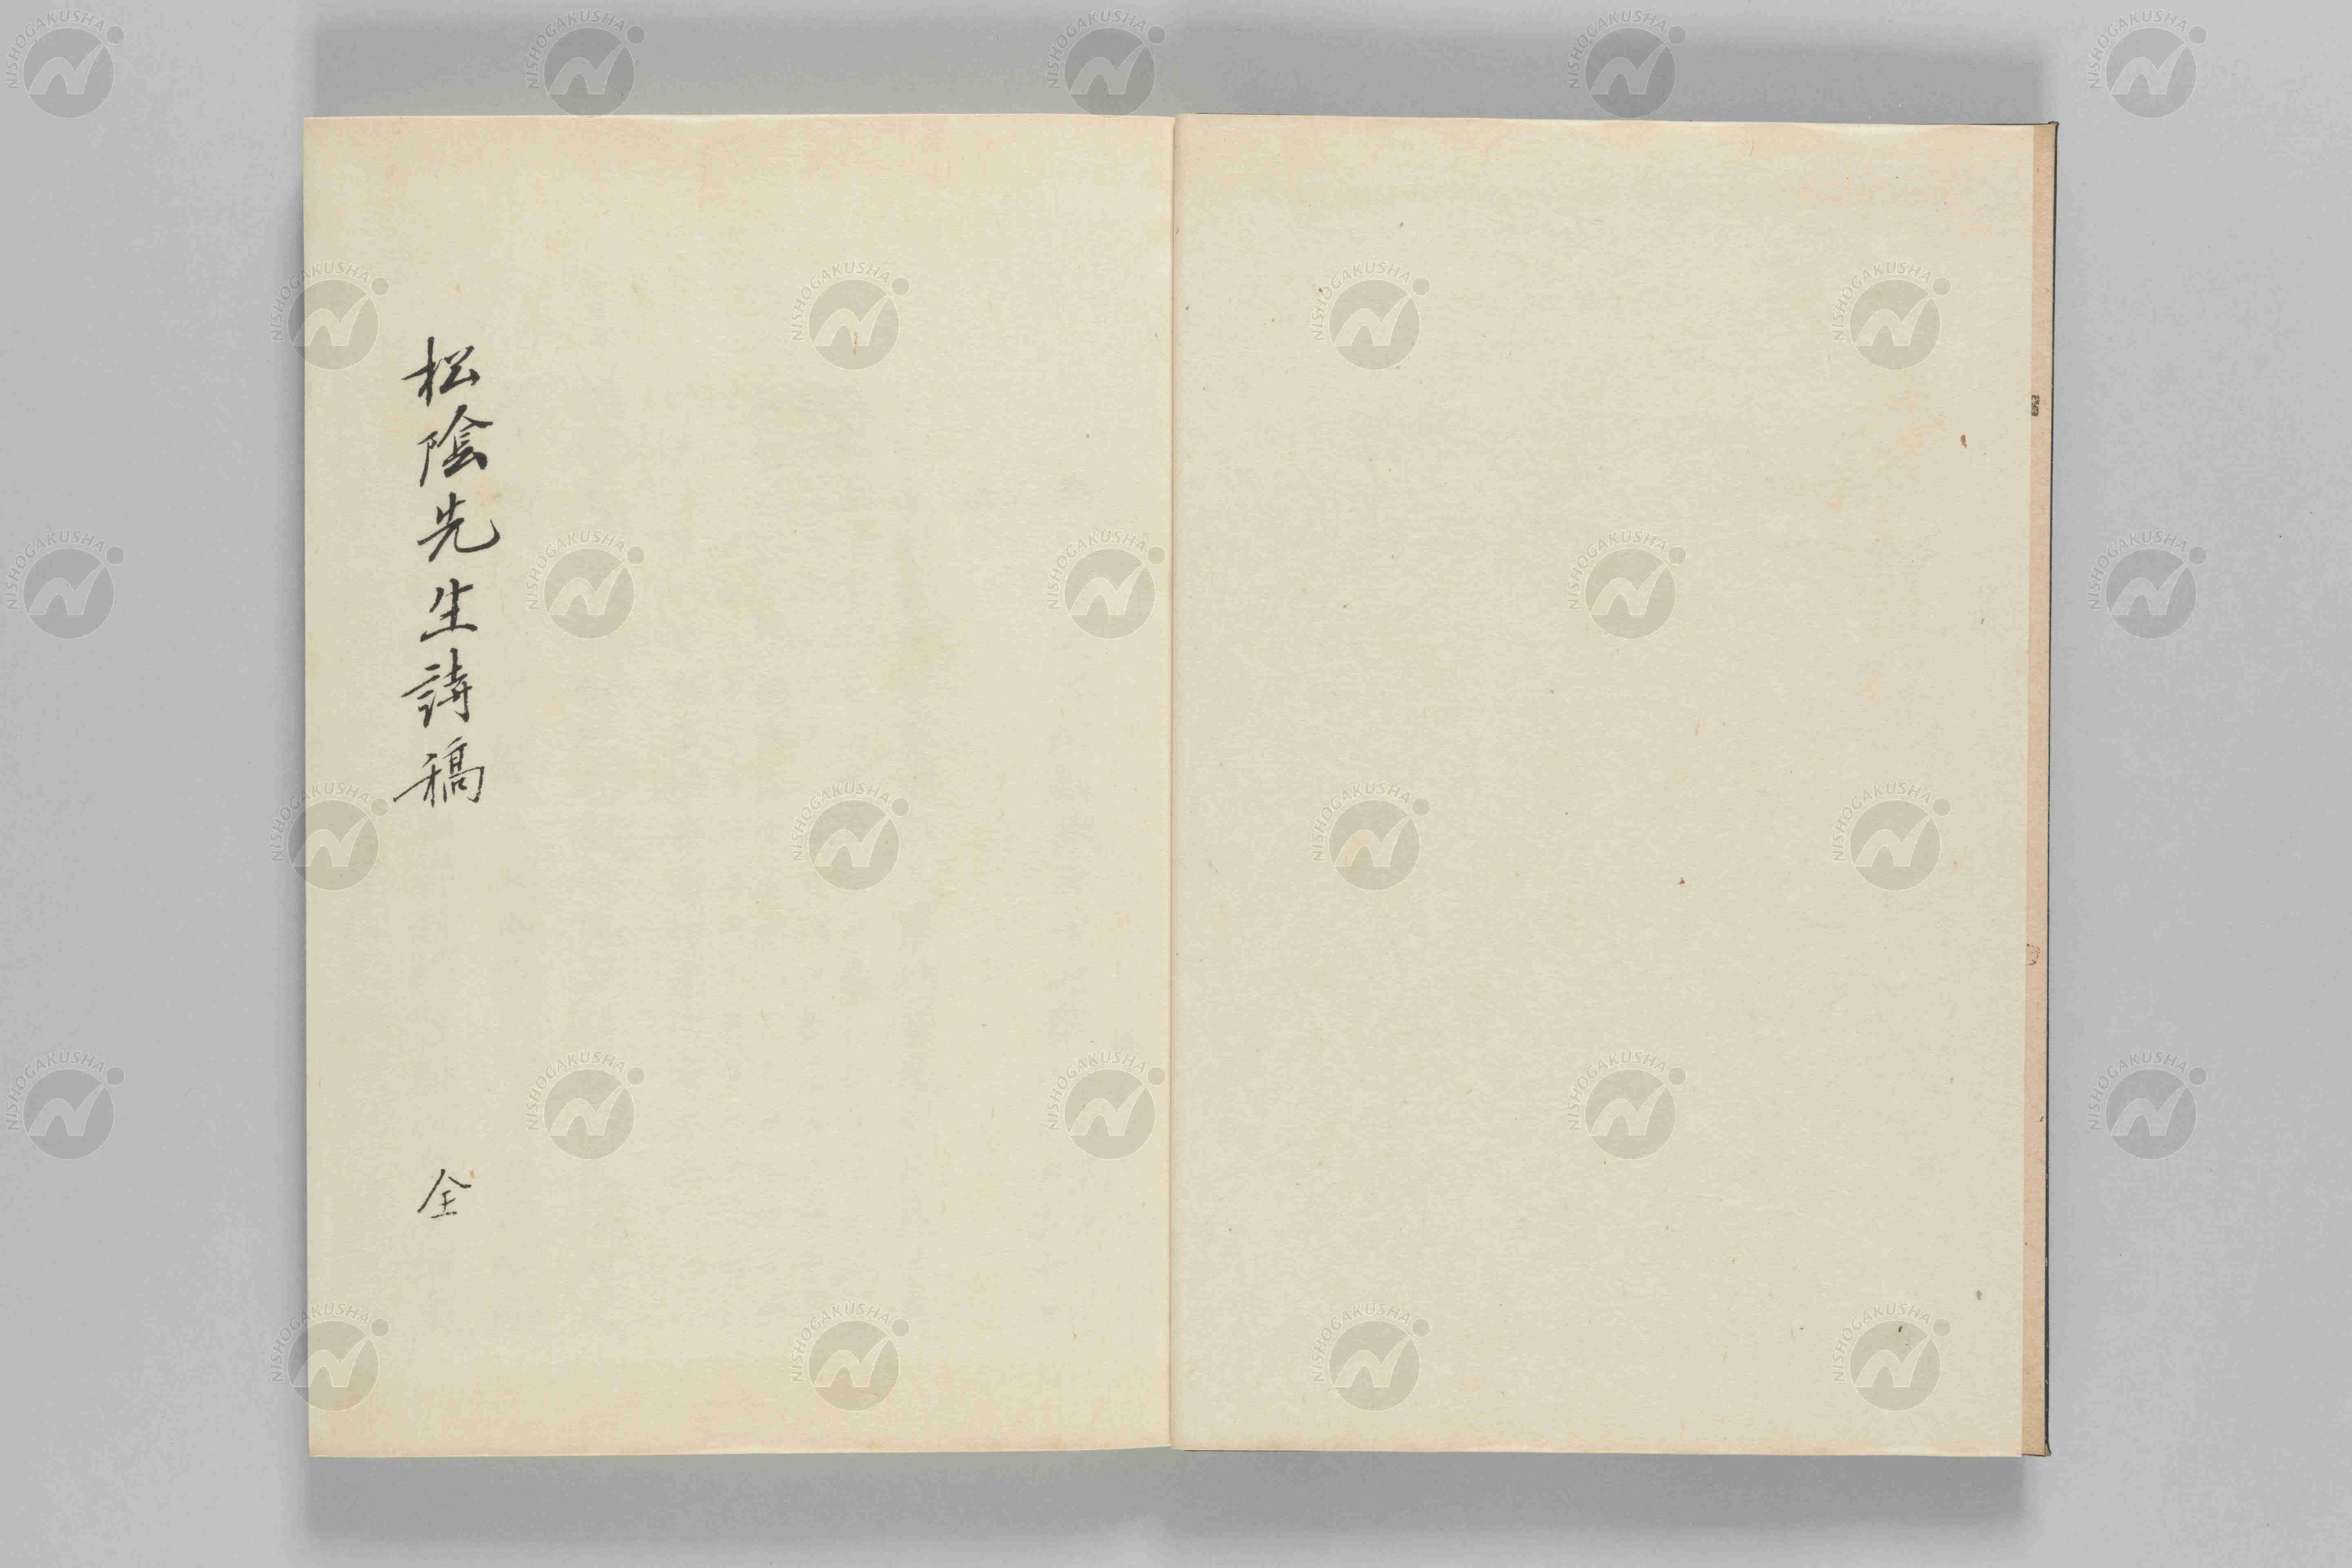 松陰先生詩稿 全
NISHOGAKUSHA